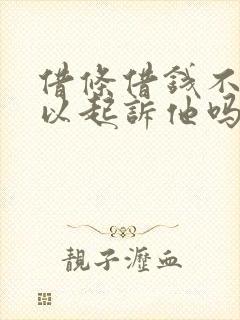 借條借錢不
以起訴他吗
靚子瀝血